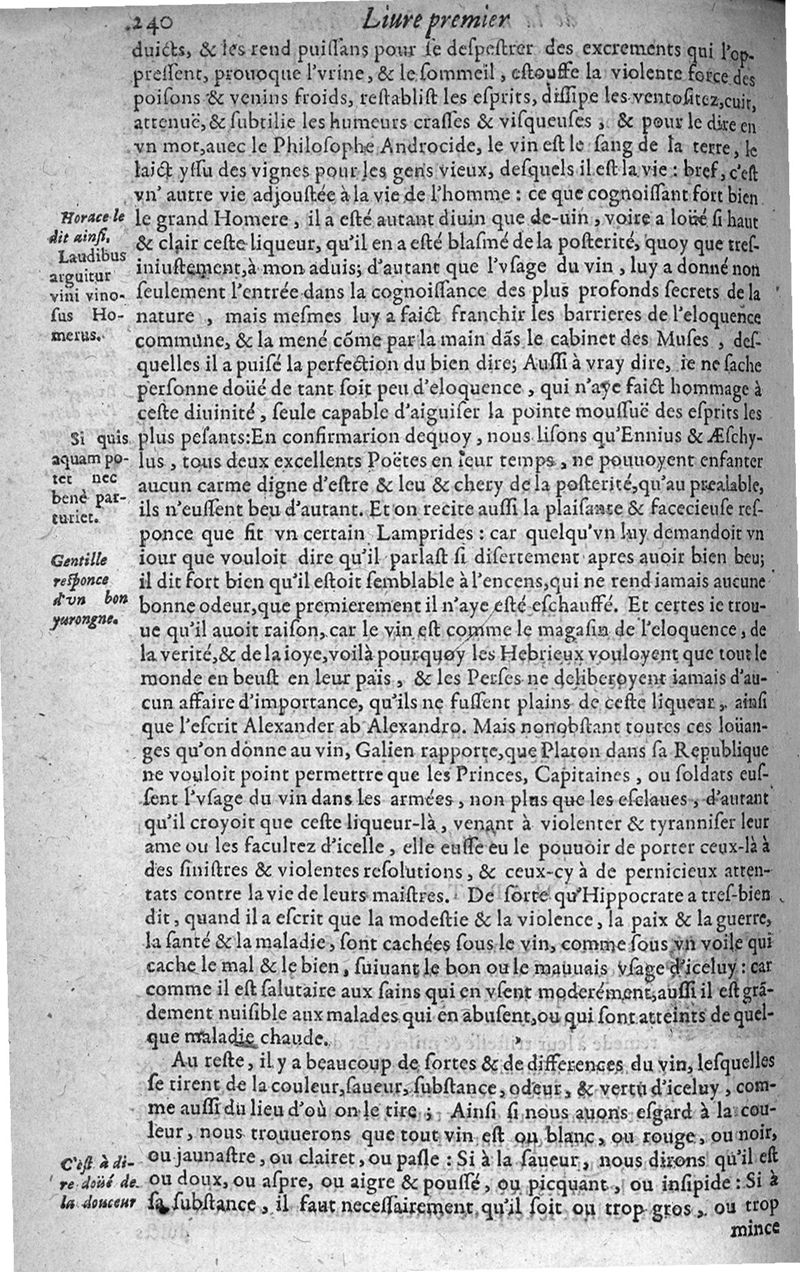 240 Liure premier
duicts, & les rend puiſſans pour ſe deſpeſtrer des excrements qui l'op-
preſſent, prouoque l'vrine, & le ſommeil, eſtouffe la violente force des
poiſons & venins froids, reſtabliſt les eſprits, diſſipe les ventoſitez, cuit,
attenuë, & ſubtilie les humeurs craſſes & viſqueuſes, & pour le dire en
vn mot, auec le Philoſophe Androcide, le vin eſt le ſang de la terre, le
laict yſſu des vignes pour les gens vieux, deſquels il eſt la vie : bref, c'eſt
vn' autre vie adjouſtée à la vie de l'homme : ce que cognoiſſant fort bien
Horace le
dit ainſi.
Laudibus
arguitur
vini vino-
ſus Ho-
merus.
le grand Homere, il a eſté autant diuin que de-uin, voire a loüé ſi haut
& clair ceſte liqueur, qu'il en a eſté blaſmé de la poſterité, quoy que treſ-
iniuſtement, à mon aduis; d'autant que l'vſage du vin, luy a donné non
ſeulement l'entrée dans la cognoiſſance des plus profonds ſecrets de la
nature, mais meſmes luy a faict franchir les barrieres de l'eloquence
commune, & la mené cōme par la main dās le cabinet des Muſes, deſ-
quelles il a puiſé la perfection du bien dire; Auſſi à vray dire, ie ne ſache
perſonne doüé de tant ſoit peu d'eloquence, qui n'aye faict hommage à
ceſte diuinité, ſeule capable d'aiguiſer la pointe mouſſuë des eſprits les
Si quis
aquam po-
tet nec
benè par-
turiet.
plus peſants: En confirmarion dequoy, nous liſons qu'Ennius & Æſchy-
lus, tous deux excellents Poëtes en leur temps, ne pouuoyent enfanter
aucun carme digne d'eſtre & leu & chery de la poſterité, qu'au prealable,
ils n'euſſent beu d'autant. Et on recite auſſi la plaiſante & facecieuſe reſ-
ponce que fit vn certain Lamprides : car quelqu'vn luy demandoit vn
Gentille
reſponce
d'vn bon
yurongne.
iour que vouloit dire qu'il parlaſt ſi diſertement apres auoir bien beu;
il dit fort bien qu'il eſtoit ſemblable à l'encens, qui ne rend iamais aucune
bonne odeur, que premierement il n'aye eſté eſchauffé. Et certes ie trou-
ue qu'il auoit raiſon, car le vin eſt comme le magaſin de l'eloquence, de
la verité, & de la ioye, voilà pourquoy les Hebrieux vouloyent que tout le
monde en beuſt en leur païs, & les Perſes ne deliberoyent iamais d'au-
cun affaire d'importance, qu'ils ne fuſſent plains de ceſte liqueur, ainſi
que l'eſcrit Alexander ab Alexandro. Mais nonobſtant toutes ces loüan-
ges qu'on donne au vin, Galien rapporte, que Platon dans ſa Republique
ne vouloit point permettre que les Princes, Capitaines, ou ſoldats euſ-
ſent l'vſage du vin dans les armées, non plus que les eſclaues, d'autant
qu'il croyoit que ceſte liqueur-là, venant à violenter & tyranniſer leur
ame ou les facultez d'icelle, elle euſſe eu le pouuoir de porter ceux-là à
des ſiniſtres & violentes reſolutions, & ceux-cy à de pernicieux atten-
tats contre la vie de leurs maiſtres. De ſorte qu'Hippocrate a tres-bien
dit, quand il a eſcrit que la modeſtie & la violence, la paix & la guerre,
la ſanté & la maladie, ſont cachées ſous le vin, comme ſous vn voile qui
cache le mal & le bien, ſuiuant le bon ou le mauuais vſage d'iceluy : car
comme il eſt ſalutaire aux ſains qui en vſent moderément, auſſi il eſt grā-
dement nuiſible aux malades qui en abuſent, ou qui ſont atteints de quel-
que maladie chaude.
Au reſte, il y a beaucoup de ſortes & de differences du vin, leſquelles
ſe tirent de la couleur, ſaueur, ſubſtance, odeur, & vertu d'iceluy, com-
me auſſi du lieu d'où on le tire; Ainſi ſi nous auons eſgard à la cou-
leur, nous trouuerons que tout vin eſt ou blanc, ou rouge, ou noir,
C'eſt à di-
re doüé de
la douceur
ou jaunaſtre, ou clairet, ou paſle : Si à la ſaueur, nous dirons qu'il eſt
ou doux, ou aſpre, ou aigre & pouſſé, ou picquant, ou inſipide : Si à
ſa ſubſtance, il faut neceſſairement qu'il ſoit ou trop gros, ou trop
mince